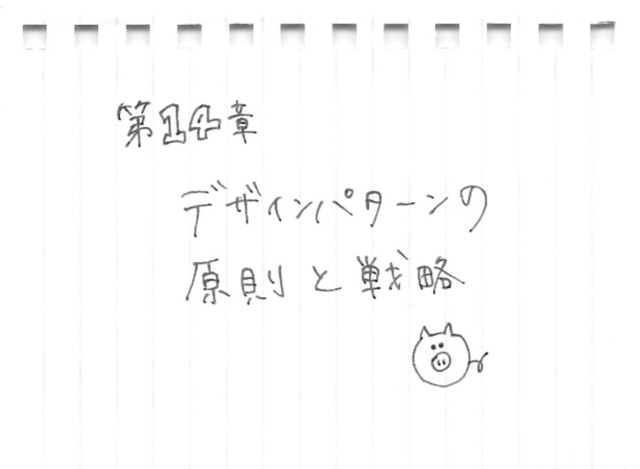 第14章
デザインパターンの
原則と戦略